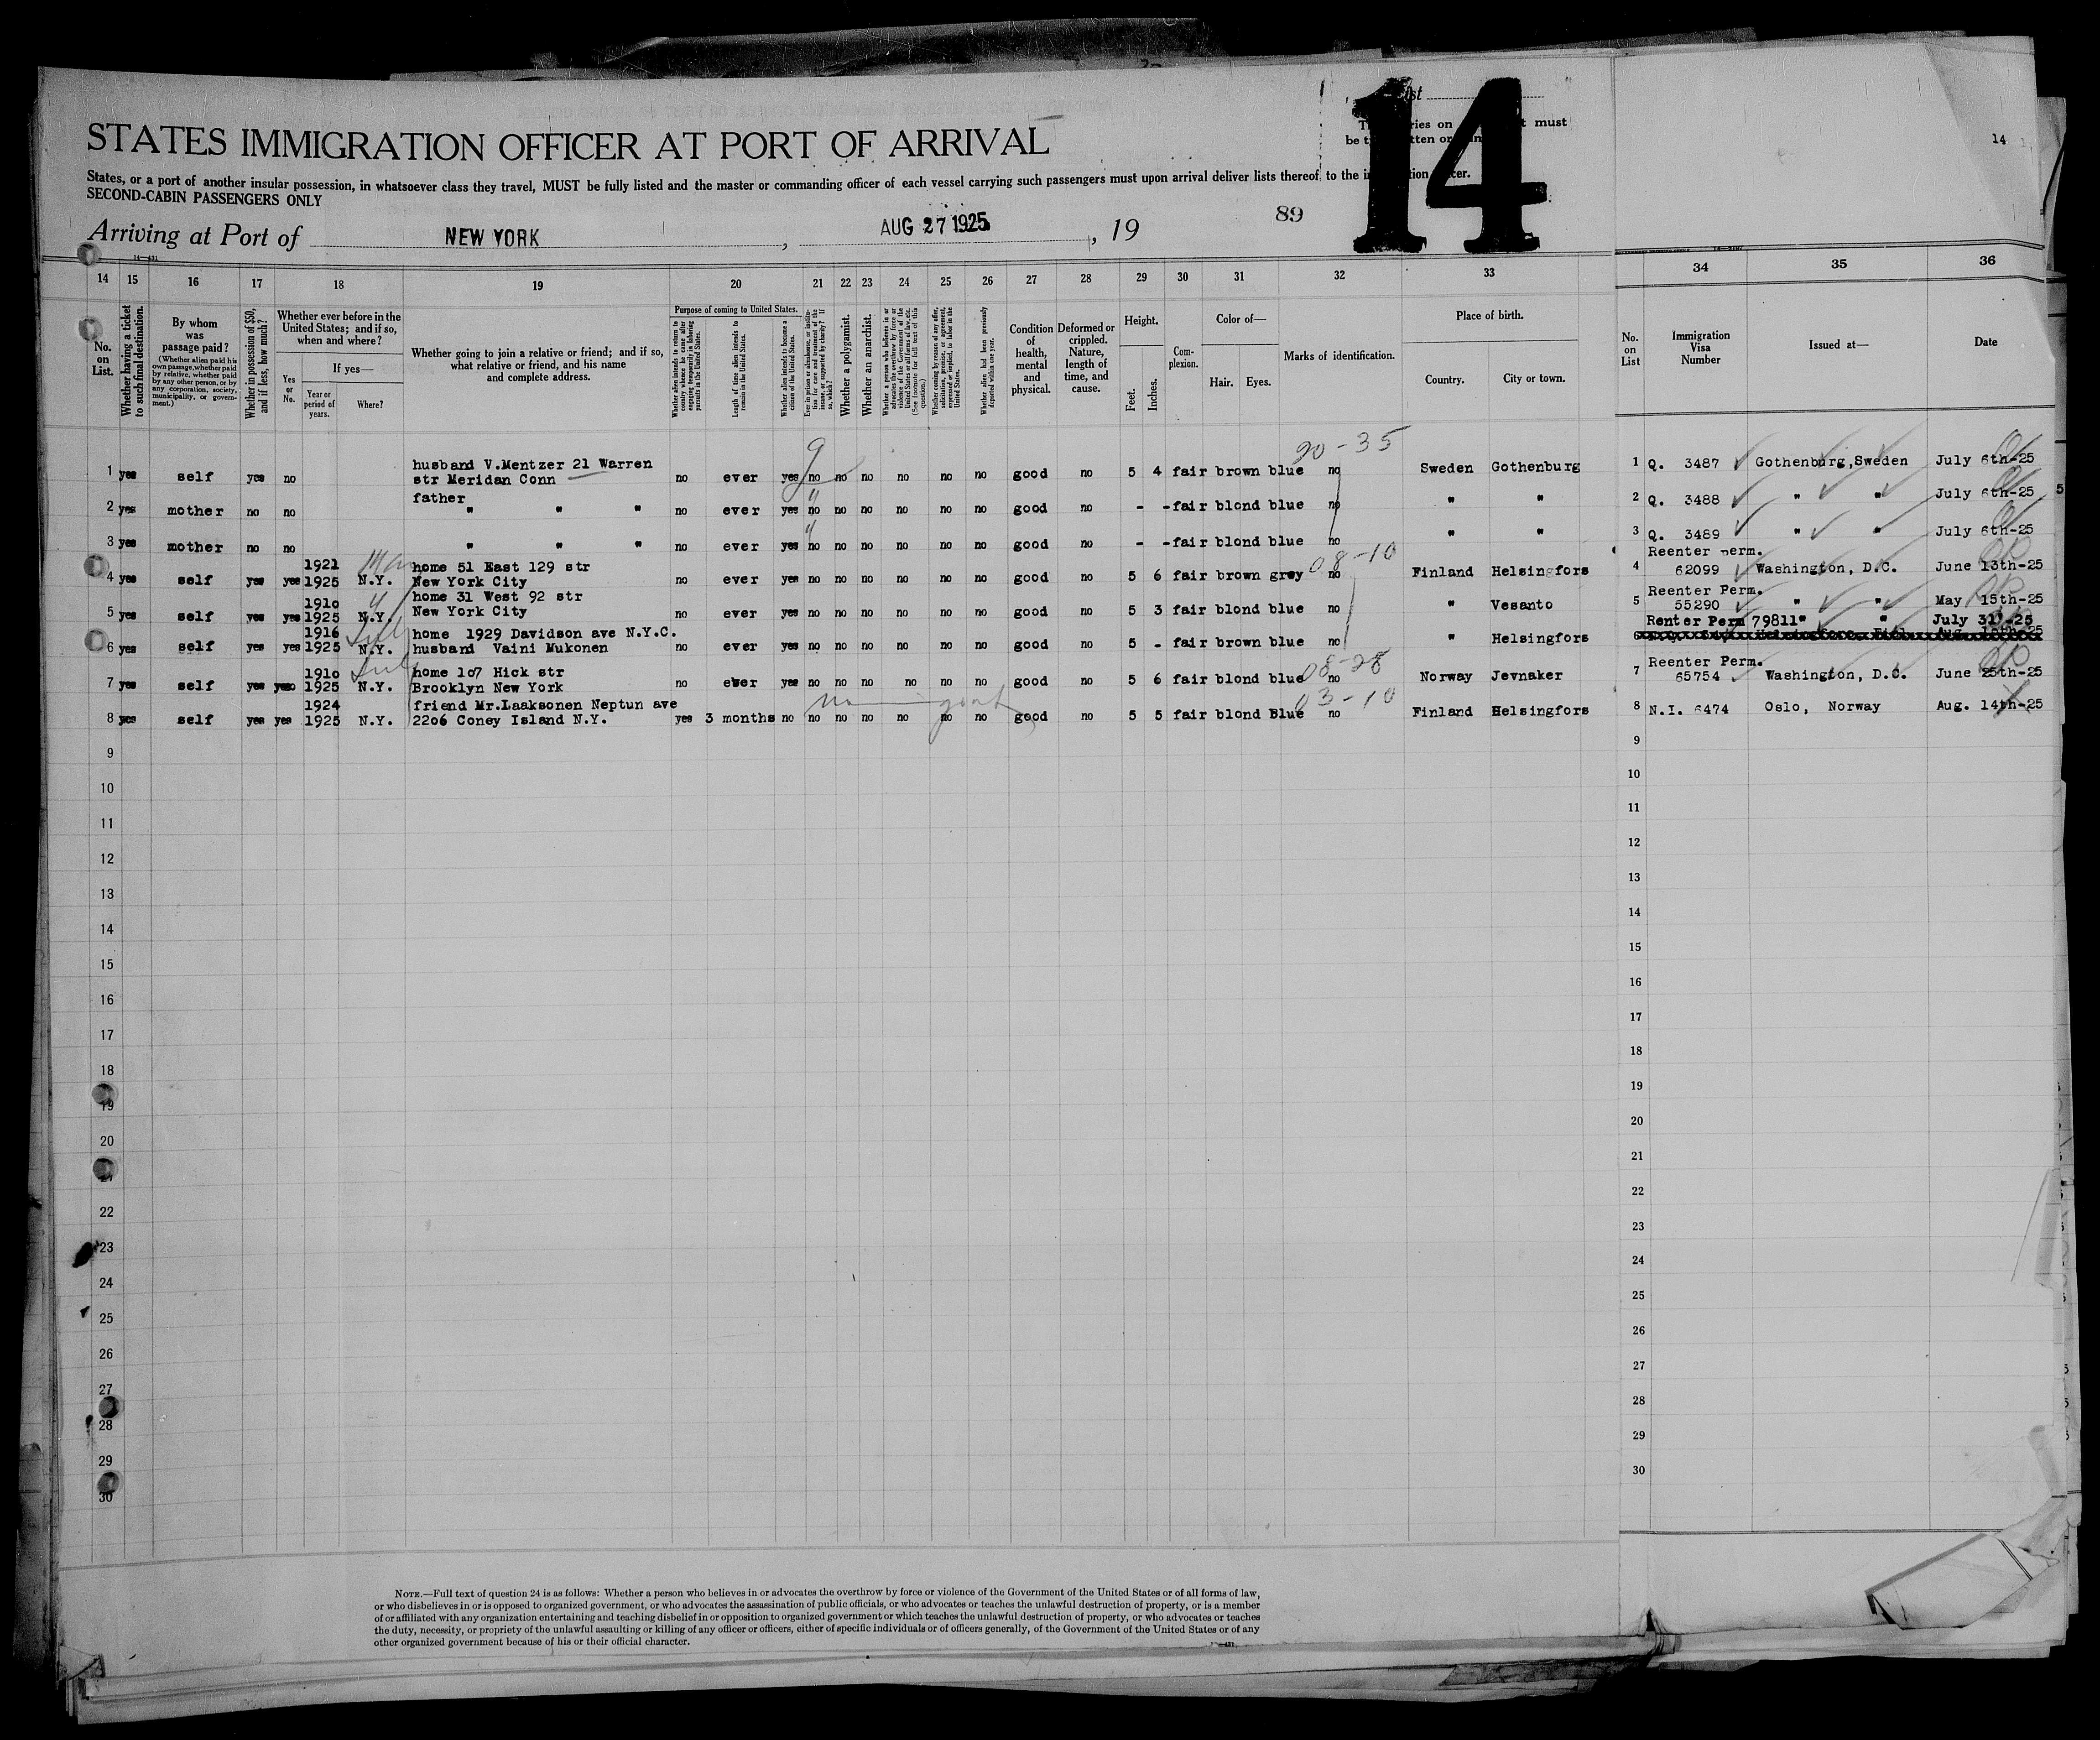 14
List
14
STATES IMMIGRATION OFFICER AT PORT OF ARRIVAL
States, or a port of another insular possession, in whatsoever class they travel, MUST be fully listed and the master or commanding officer of each vessel carrying such passengers must upon arrival deliver lists thereof to the
SECOND-CABIN PASSENGERS ONLY
Arriving at Port of NEW YORK, AUG 27 1925, 19
89
14 15 16 17 18 19 20 21 22 23 24 25 26 27 28 29 30 31 32 33 34 35 36
No. on List.
Whether having a ticket to such final destination.
By whom was passage paid?
(Whether alien paid his own passage, whether paid by relative, whether paid by any other person, or by any corporation, society, municipality, or government.)
Whether in possession of $50, and if less, how much?
Whether ever before in the United States; and if so, when and where?
Yes or No.
If yes—
Year or period of years.
Where?
Whether going to join a relative or friend; and if so, what relative or friend, and his name and complete address.
Purpose of coming to United States.
Whether alien intends to return to country whence he came after engaging temporarily in laboring pursuits in the United States.
Length of time alien intends to remain in the United States.
Whether alien intends to become a citizen of the United States.
Ever in prison or almshouse, or institution for care and treatment of the insane, or supported by charity? If so, which?
Whether a polygamist.
Whether an anarchist.
Whether a person who believes in or advocates the overthrow by force or violence of the Government of the United States or all forms of law, etc. (See footnote for full text of this question.)
Whether coming by reason of any offer, solicitation, promise, or agreement, expressed or implied, to labor in the United States.
Whether alien had been previously deported within one year.
Condition of health, mental and physical.
Deformed or crippled. Nature, length of time, and cause.
Height.
Feet. Inches.
Complexion.
Color of—
Hair. Eyes.
Marks of identification.
Place of birth.
Country. City or town.
No. on List
Immigration Visa Number
Issued at—
Date
90-35
1 yes self yes no husband V.Mentzer 21 Warren
str Meridan Conn no ever yes no no no no no no good no 5 4 fair brown blue no Sweden Gothenburg 1 Q. 3487 Gothenburg,Sweden July 6th-25
father
2 yes mother no no " " " no ever yes no no no no no no good no - - fair blond blue no " " 2 Q. 3488 " " July 6th-25
3 yes mother no no " " " no ever yes no no no no no no good no - - fair blond blue no " " 3 Q. 3489 " " July 6th-25
08-10
1921 home 51 East 129 str Reenter perm.
4 yes self yes yes 1925 N.Y. New York City no ever yes no no no no no no good no 5 6 fair brown grey no Finland Helsingfors 4 62099 Washington, D.C. June 13th-25
1910 home 31 West 92 str Reenter Perm.
5 yes self yes yes 1925 N.Y. New York City no ever yes no no no no no no good no 5 3 fair blond blue no " Vesanto 5 55290 " " May 15th-25
1916 home 1929 Davidson ave N.Y.C. Renter Perm 79811" " July 31-25
6 yes self yes yes 1925 N.Y. husband Vaini Mukonen no ever yes no no no no no no good no 5 - fair brown blue no " Helsingfors 6
08-28
1910 home 107 Hick str Reenter Perm.
7 yes self yes 1925 N.Y. Brooklyn New York no ever yes no no no no no no good no 5 6 fair blond blue no Norway Jevnaker 7 65754 Washington, D.C. June 25th-25
03-10
1924 friend Mr.Laaksonen Neptun ave
8 yes self yes yes 1925 N.Y. 2206 Coney Island N.Y. yes 3 months no no no no no no no good no 5 5 fair blond Blue no Finland Helsingfors 8 N.I. 6474 Oslo, Norway Aug. 14th-25
9 9
10 10
11 11
12 12
13 13
14 14
15 15
16 16
17 17
18 18
19 19
20 20
21 21
22 22
23 23
24 24
25 25
26 26
27 27
28 28
29 29
30 30
NOTE.—Full text of question 24 is as follows: Whether a person who believes in or advocates the overthrow by force or violence of the Government of the United States or of all forms of law,
or who disbelieves in or is opposed to organized government, or who advocates the assassination of public officials, or who advocates or teaches the unlawful destruction of property, or is a member
of or affiliated with any organization entertaining and teaching disbelief in or opposition to organized government or which teaches the unlawful destruction of property, or who advocates or teaches
the duty, necessity, or propriety of the unlawful assaulting or killing of any officer or officers, either of specific individuals or of officers generally, of the Government of the United States or of any
other organized government because of his or their official character.